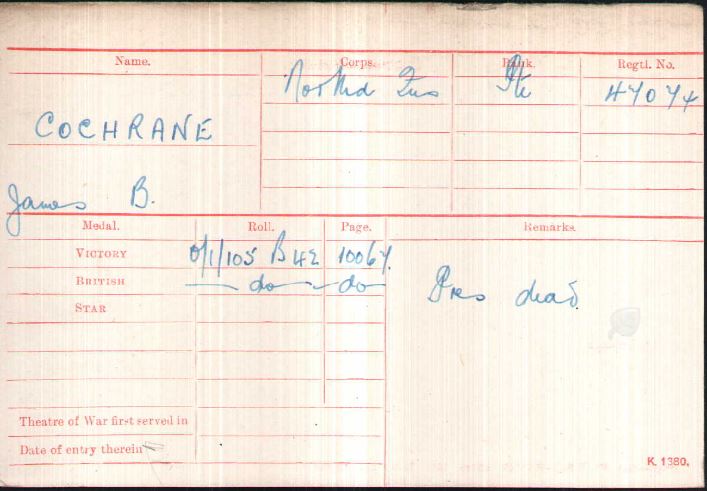 Name.
Corps.
Rank.
Regtl. No.
North'd Fus
Pte
47074
COCHRANE
James B.
Medal.
Roll.
Page.
Remarks.
VICTORY
O/1/105 B42
10067.
BRITISH
do
do
STAR
Pres dead
Theatre of War first served in
Date of entry therein
K. 1380.